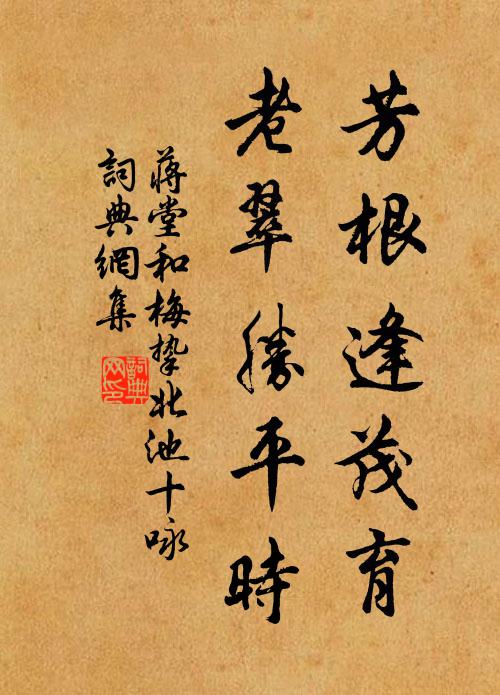 芳根逢茂育
老翠勝平時
蔣堂和梅摯北池十咏
詞典網集
詞典网印